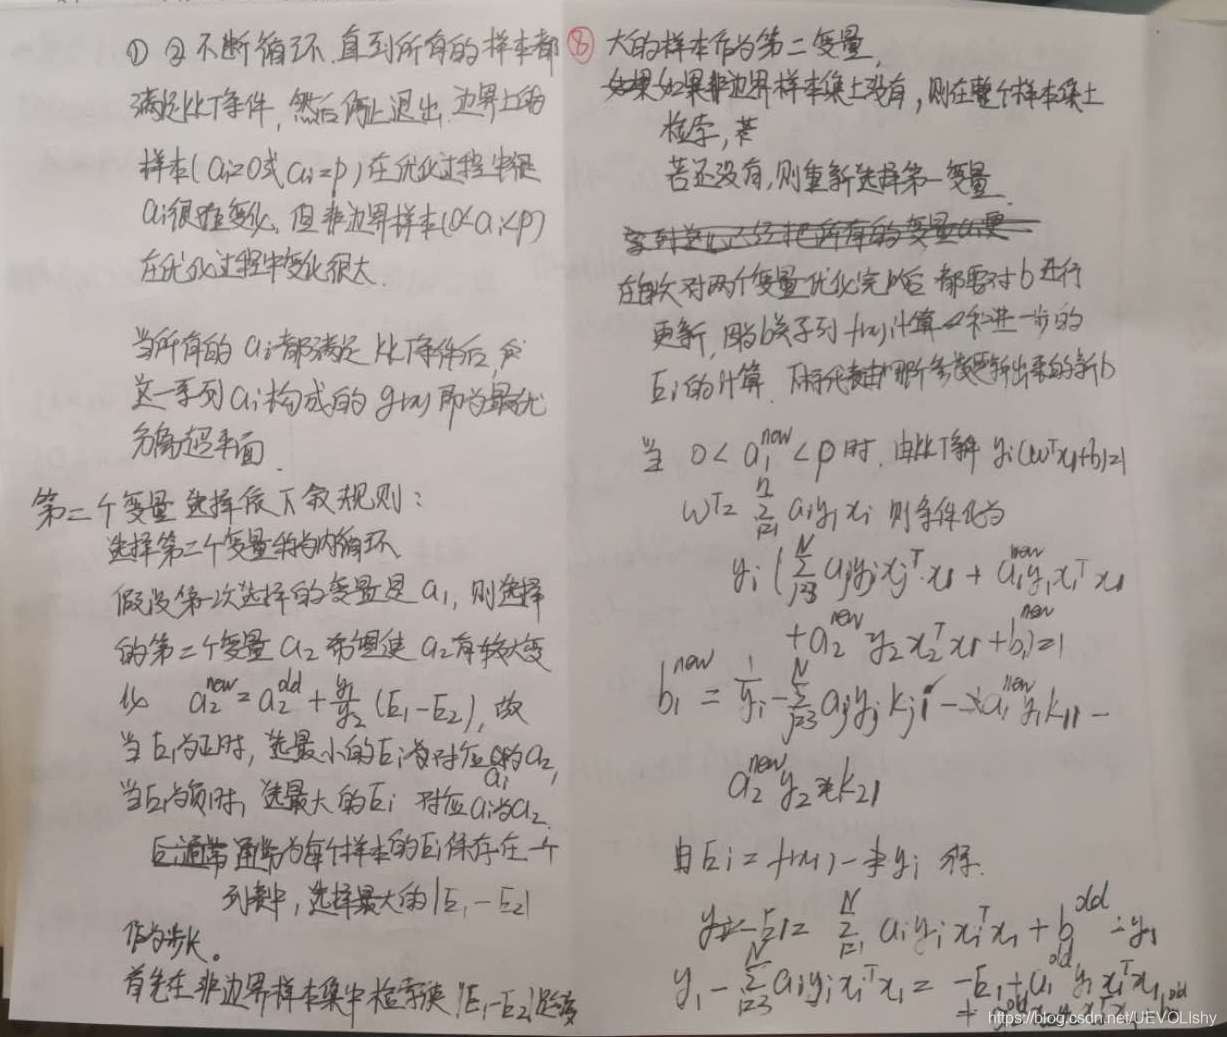 ① ② 不断循环,直到所有的样本都
满足KKT条件,然后停止退出,边界上的
样本(ai=0或ai=p)在优化过程中很
ai很难变化,但非边界样本(0<ai<p)
在优化过程中变化很大.
当所有的ai都满足KKT条件后,
这一系列ai构成的g(x)即为最优
分离超平面.
第二个变量选择依下叙规则:
选择第二个变量称为内循环
假设第一次选择的变量是a1,则选择
的第二个变量a2希望使a2有较大变
化 a2^new = a2^old + y1/y2 (E1-E2),故
当E1为正时,选最小的Ei对应ai为a2,
当E1为负时,选最大的Ei 对应ai为a2.
通常为每个样本的Ei保存在一个
列表中,选择最大的|E1-E2|
作为步长。
首先在非边界样本集中检索使|E1-E2|
⑧ 大的样本作为第二变量,
如果非边界样本集上没有,则在整个样本集上
检索,
若还没有,则重新选择第一变量.
在每次对两个变量优化完以后 都要对b进行
更新,因为b关乎到f(x)计算 和进一步的
Ei的计算.下标代表由哪个参数更新出来的新b
当 0 < a1^new < p 时,由KKT条件 yi(w^T x1+b)=1
w^T = Σ_{i=1}^n aiyixi 则条件化为
yi ( Σ_{j=3}^N ajyjxj^T·x1 + a1^new y1x1^T x1
+ a2^new y2 x2^T x1 + b1^new)=1
b1^new = 1/yi - Σ_{j=3}^N ajyj kj1 - a1^new y1 k11 -
a2^new y2 k21
由Ei = f(xi) - yi 得.
E1 = Σ_{i=1}^N aiyi xi^T x1 + b^old - y1
y1 - Σ_{i=3}^N aiyi xi^T x1 = -E1 + a1^old y1 x1^T x1
https://blog.csdn.net/UEVOLIshy